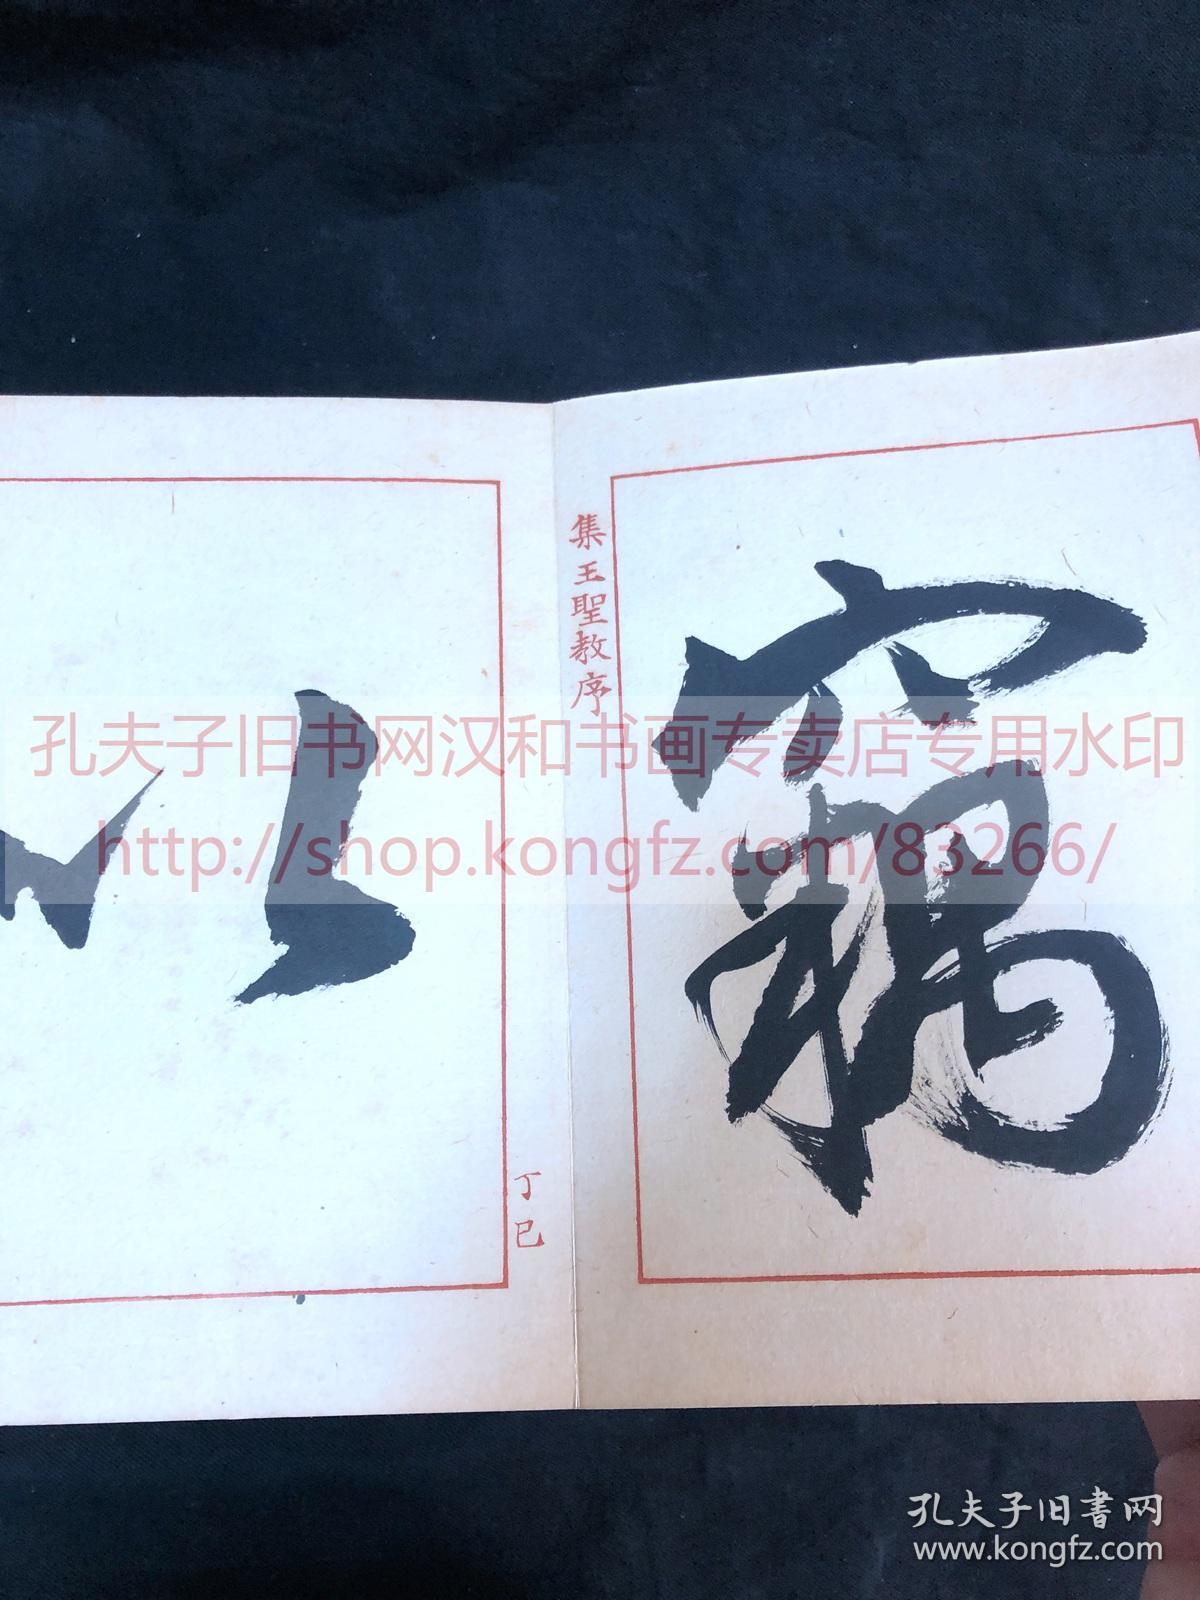 竊
集王聖教序
以
丁巳
孔夫子旧书网汉和书画专卖店专用水印
http://shop.kongfz.com/83266/
孔夫子旧書网
www.kongfz.com